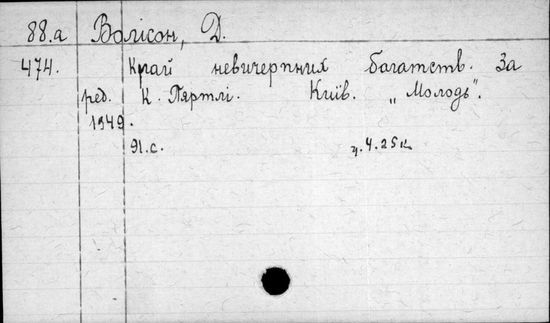 88.а Волісон, Д.
474. Край невичерпних багатств. За
ред. К. Пяртлі. Київ. „Молодь".
1949.
91.с. ц. 4.25к